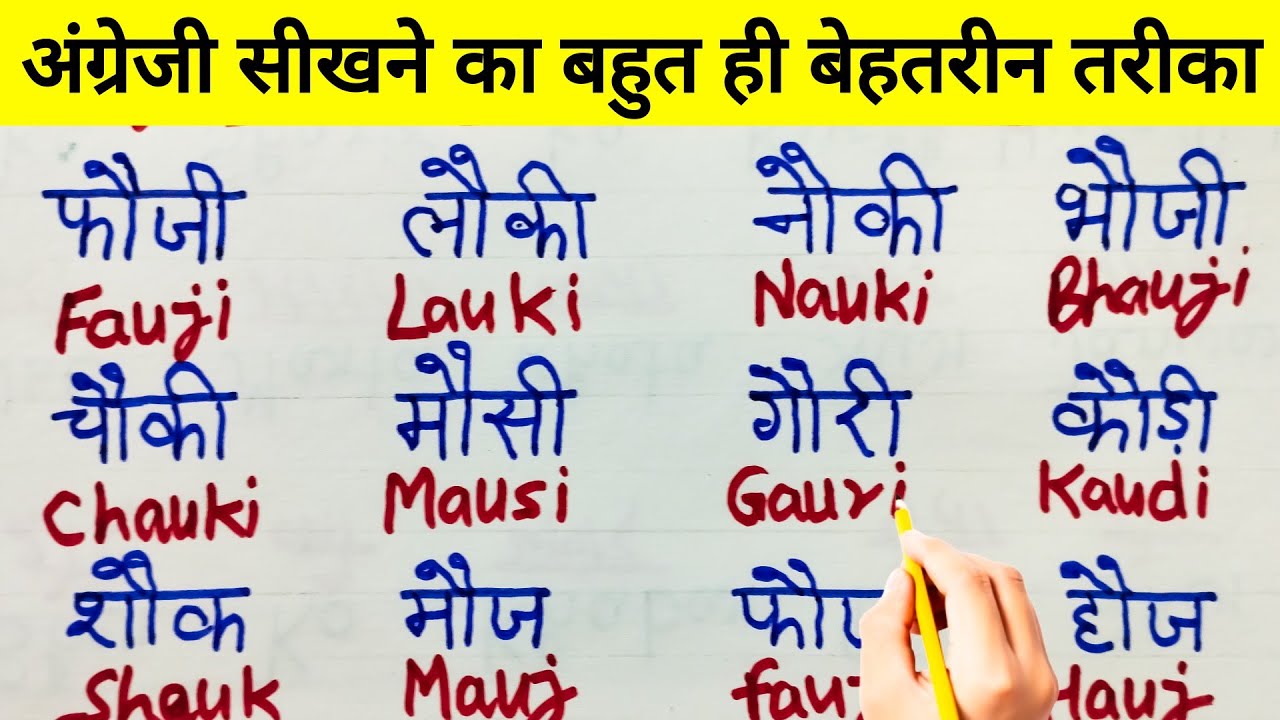 अंग्रेजी सीखने का बहुत ही बेहतरीन तरीका
फौजी लौकी नौकी भौजी
Fauji Lauki Nauki Bhauji
चौकी मौसी गौरी कौड़ी
Chauki Mausi Gauri Kaudi
शौक मौज हौज
Shauk Mauj Hauj